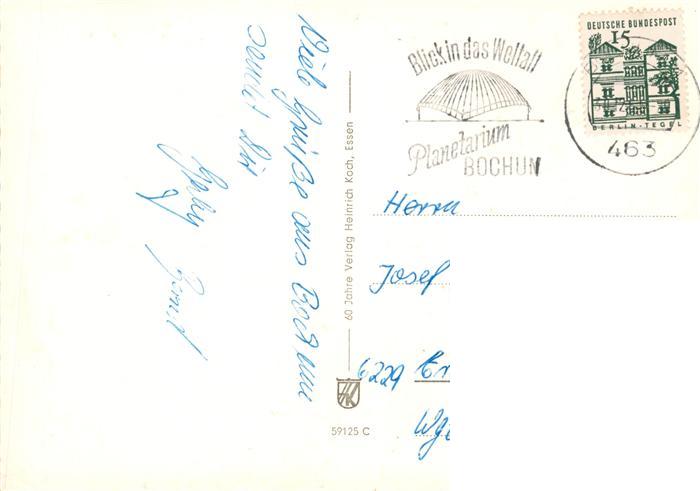 Viele Grüße aus Bochum
sendet Dir
Bernd
60 Jahre Verlag Heinrich Koch, Essen
59125 C
Blick in das Weltall
Planetarium
BOCHUM
DEUTSCHE BUNDESPOST
15
BERLIN-TEGEL
463
Herrn
Josef
6229